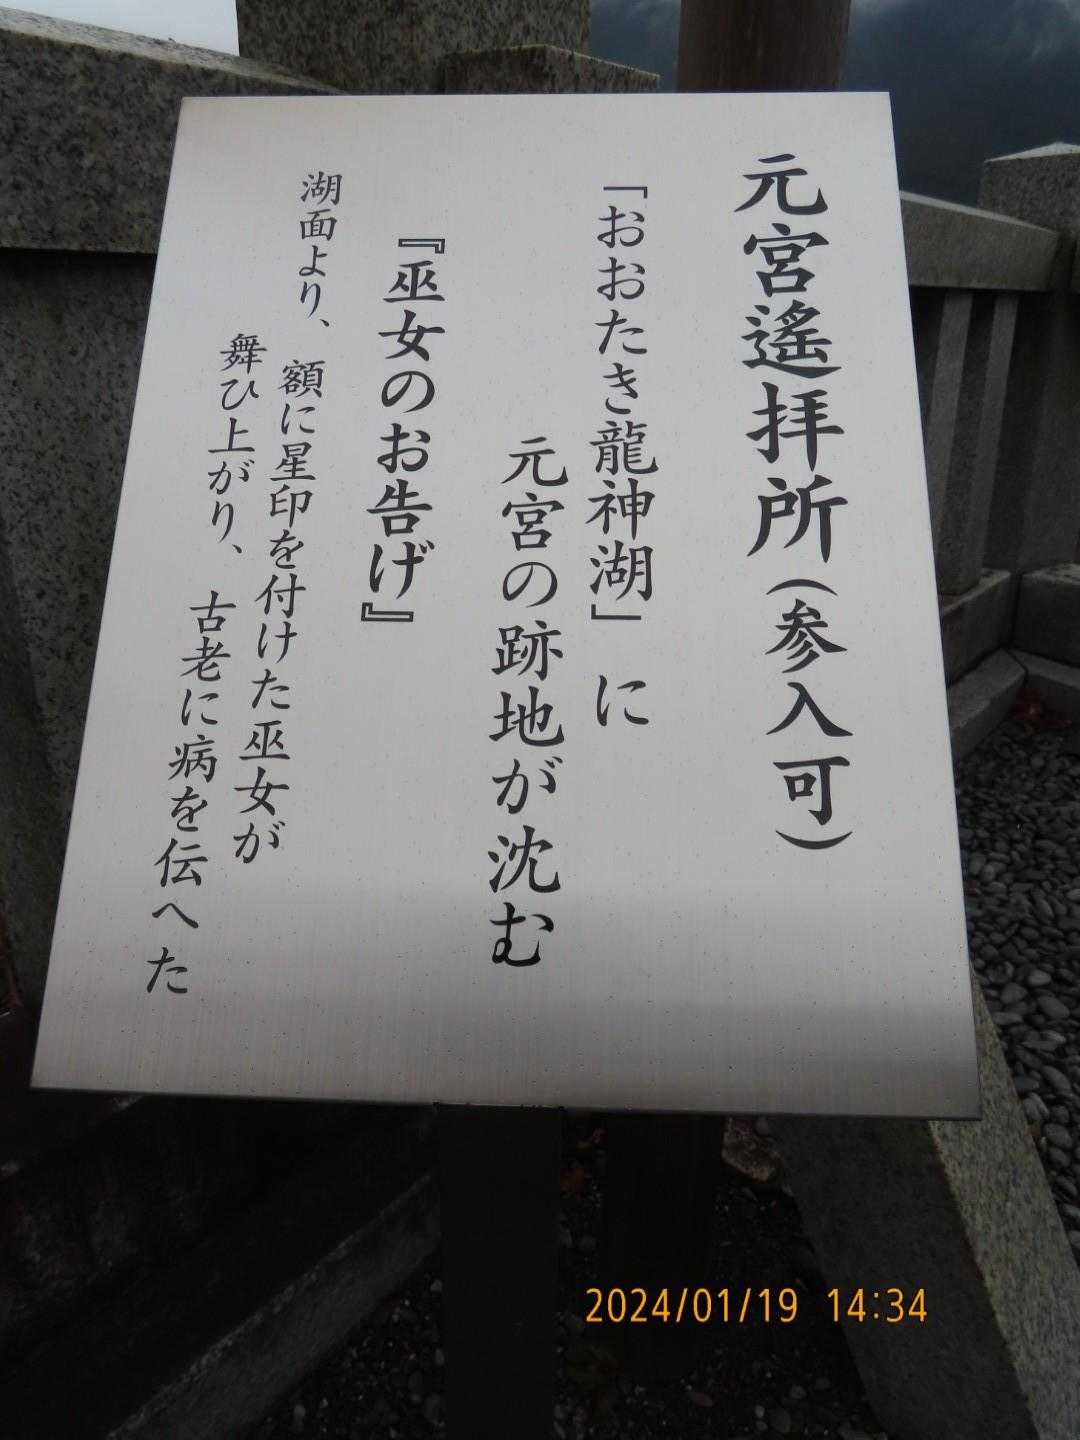 元宮遙拝所(参入可)
「おおたき龍神湖」に
元宮の跡地が沈む
『巫女のお告げ』
湖面より、
額に星印を付けた巫女が
舞ひ上がり、古老に病を伝へた
2024/01/19 14:34